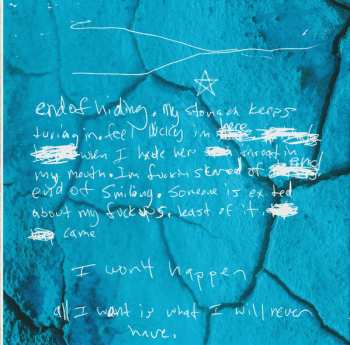 end of hiding. My stomach keeps
turing in. feel lucky im here
when I hide here a threat in
my mouth. Im fuckin skared of end
end of smiling. Someone is exited
about my fuckups, least of it.
came
I wont happen
all I want is what I will never
have.